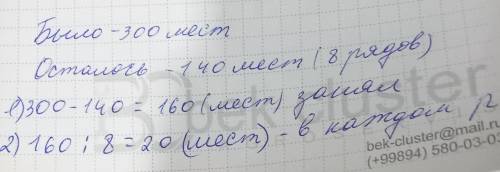 Было - 300 мест
Осталось - 140 мест (8 рядов)
1) 300 - 140 = 160 (мест) занял
2) 160 : 8 = 20 (мест) - в каждом р
bek-cluster@mail.ru
(+99894) 580-03-03